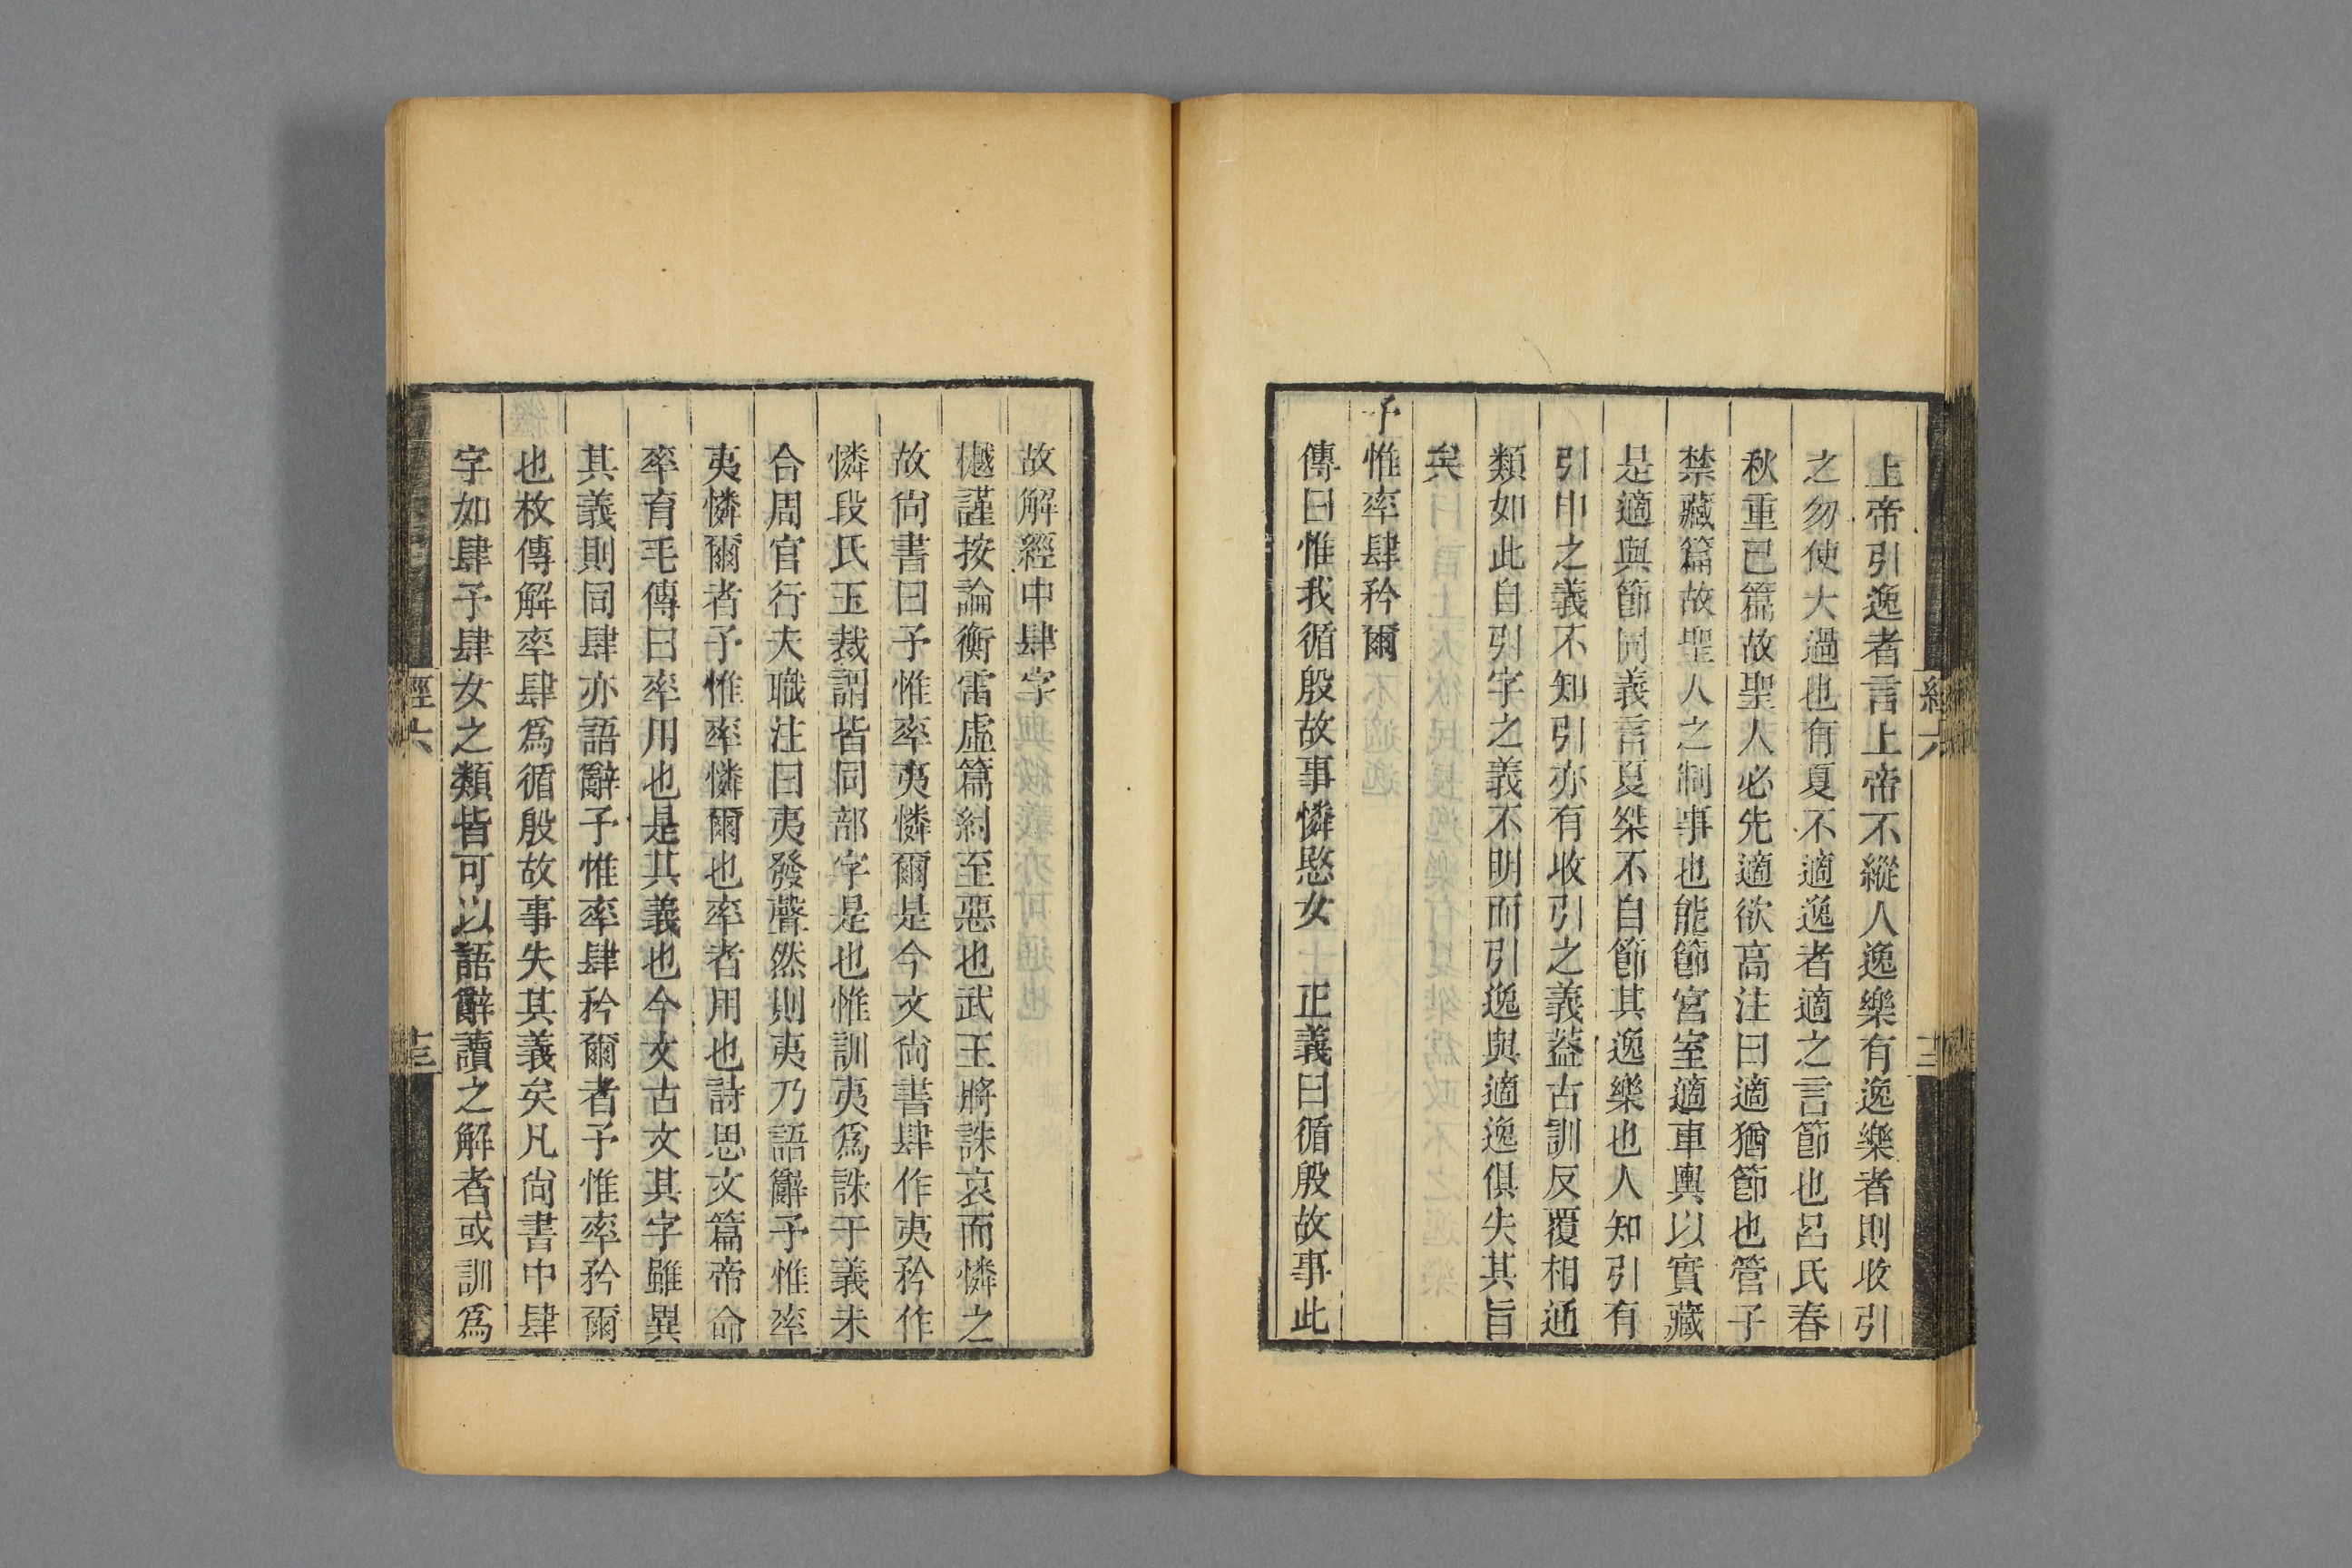 上帝引逸者言上帝不縱人逸樂有逸樂者則收引
之勿使大過也有夏不適逸者適之言節也呂氏春
秋重已篇故聖人必先適欲高注曰適猶節也管子
禁藏篇故聖人之制事也能節宮室適車輿以實藏
是適與節同義言夏桀不自節其逸樂也人知引有
引申之義不知引亦有收引之義葢古訓反覆相通
類如此自引字之義不明而引逸與適逸俱失其旨
矣
予惟率肆矜爾
傳曰惟我循殷故事憐愍女 正義曰循殷故事此
故解經中肆字
樾謹按論衡雷虛篇紂至惡也武王將誅哀而憐之
故尙書曰予惟率夷憐爾是今文尙書肆作夷矜作
憐段氏玉裁謂皆同部字是也惟訓夷爲誅于義未
合周官行夫職注曰夷發聲然則夷乃語辭予惟率
夷憐爾者予惟率憐爾也率者用也詩思文篇帝命
率育毛傳曰率用也是其義也今文古文其字雖異
其義則同肆亦語辭予惟率肆矜爾者予惟率矜爾
也枚傳解率肆爲循殷故事失其義矣凡尙書中肆
字如肆予肆女之類皆可以語辭讀之解者或訓爲
經六